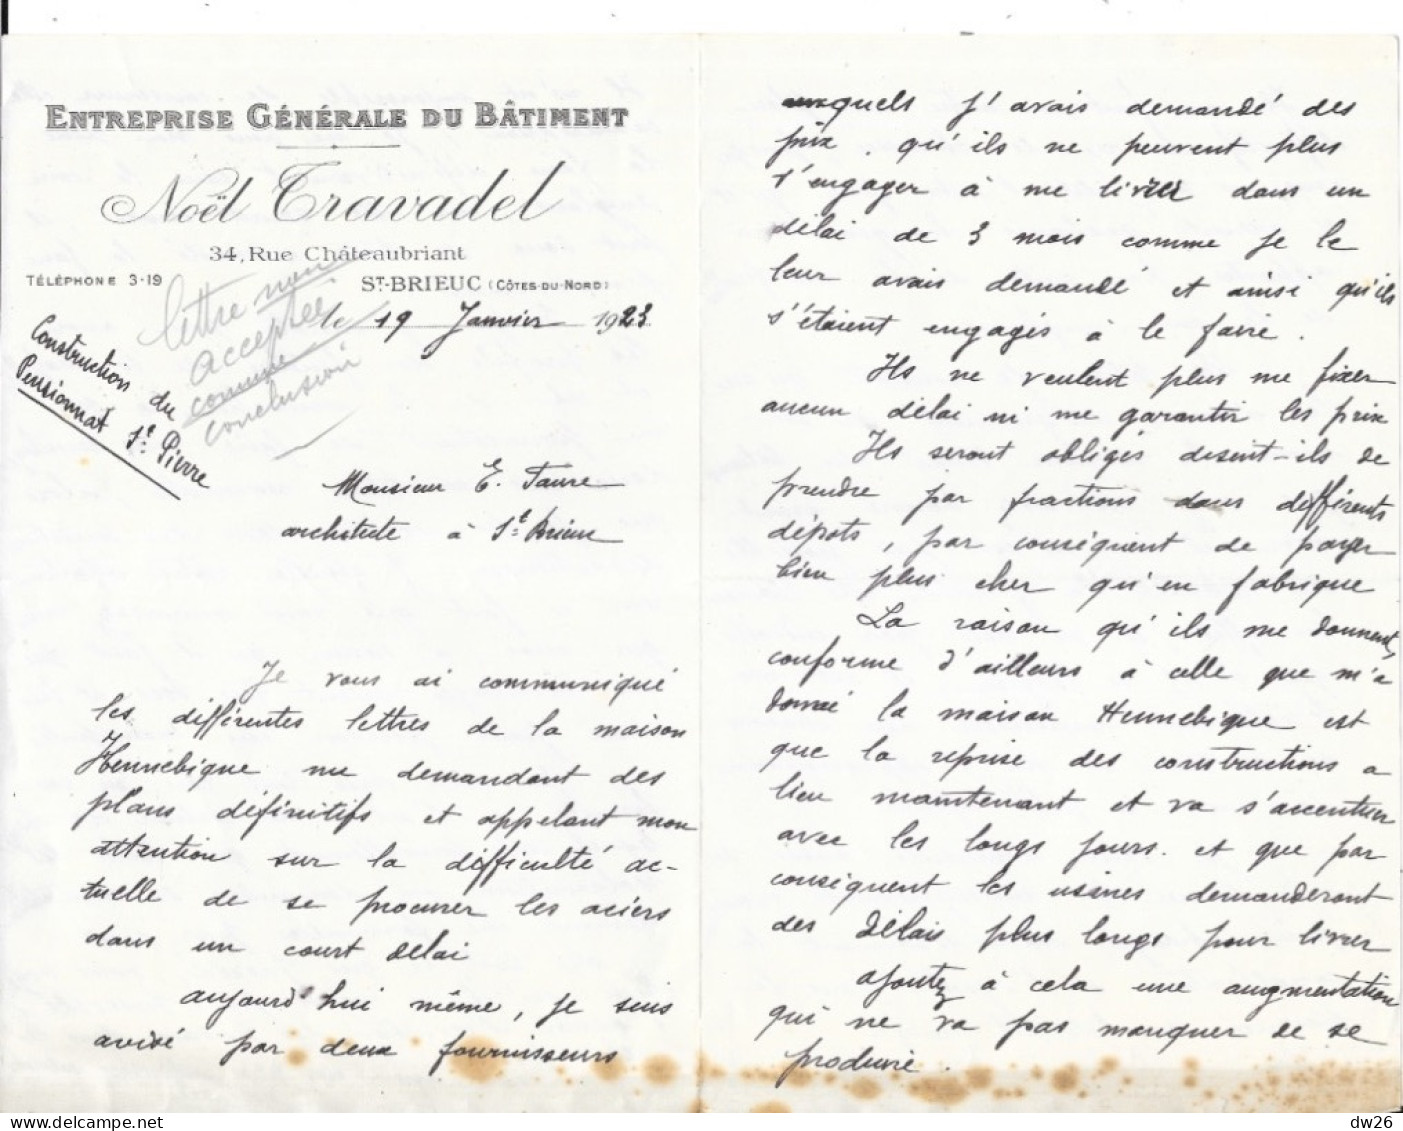 ENTREPRISE GÉNÉRALE DU BÂTIMENT
Noël Travadel
34, Rue Châteaubriant
TÉLÉPHONE 3-19
ST-BRIEUC (CÔTES-DU-NORD)
le 19 Janvier 1923
lettre non
acceptée
comme
conclusion
Construction du
Pensionnat St Pierre
Monsieur E. Faure
architecte à St Brieuc
Je vous ai communiqué
les différentes lettres de la maison
Hennebique me demandant des
plans définitifs et appelant mon
attention sur la difficulté ac-
tuelle de se procurer les aciers
dans un court delai
aujourd'hui même, je suis
avisé par deux fournisseurs
auxquels j'avais demandé des
prix. qu'ils ne peuvent plus
s'engager à me livrer dans un
délai de 3 mois comme je le
leur avais demandé et ainsi qu'ils
s'étaient engagés à le faire.
Ils ne veulent plus me fixer
aucun délai ni me garantir les prix
Ils seront obligés disent-ils de
prendre par fractions dans différents
dépots, par conséquent de payer
bien plus cher qu'en fabrique
La raison qu'ils me donnent,
conforme d'ailleurs à celle que m'a
donné la maison Hennebique est
que la reprise des constructions a
lieu maintenant et va s'accentuer
avec les longs jours. et que par
conséquent les usines demanderont
des délais plus longs pour livrer
ajoutez à cela une augmentation
qui ne va pas manquer de se
produire.
dw26